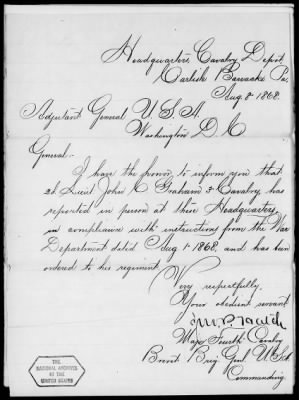 Headquarters, Cavalry Depot,
Carlisle Barracks Pa.
Aug. 8 1868.
Adjutant General U.S.A.
Washington D.C
General:-
I have the honor to inform you that
2d Lieut John C Graham 3 Cavalry, has
reported in person at these Headquarters,
in compliance with instructions from the War
Department dated Aug 1 1868, and has been
ordered to his regiment.
Very respectfully.
Your obedient servant
J.P. Hatch
Major Fourth Cavalry
Brevet Brig Genl. U.S.A
Commanding.
THE
NATIONAL ARCHIVES
OF THE
UNITED STATES